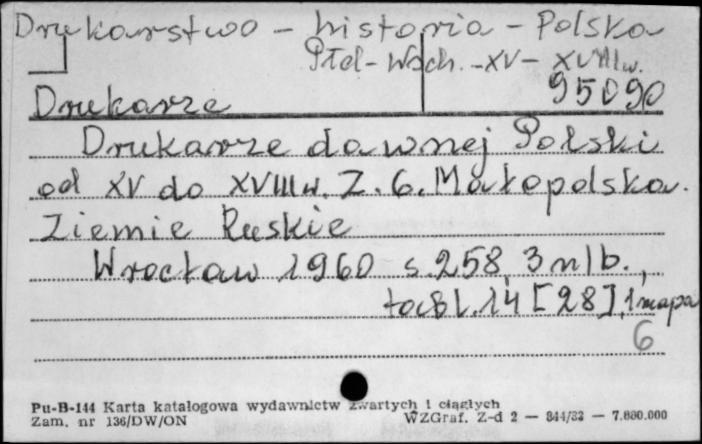 Drukarstwo - historia - Polska
Płd-Wsch. - XV - XVIII w.
95090
Drukarze
Drukarze dawnej Polski
od XV do XVIII w. Z. 6. Małopolska.
Ziemie Ruskie
Wrocław 1960 s. 258, 3 nlb.,
tabl. 14 [28], 1 mapa
6
Pu-B-144 Karta katalogowa wydawnictw zwartych i ciągłych
Zam. nr 136/DW/ON WZGraf. Z-d 2 — 844/82 — 7.880.000